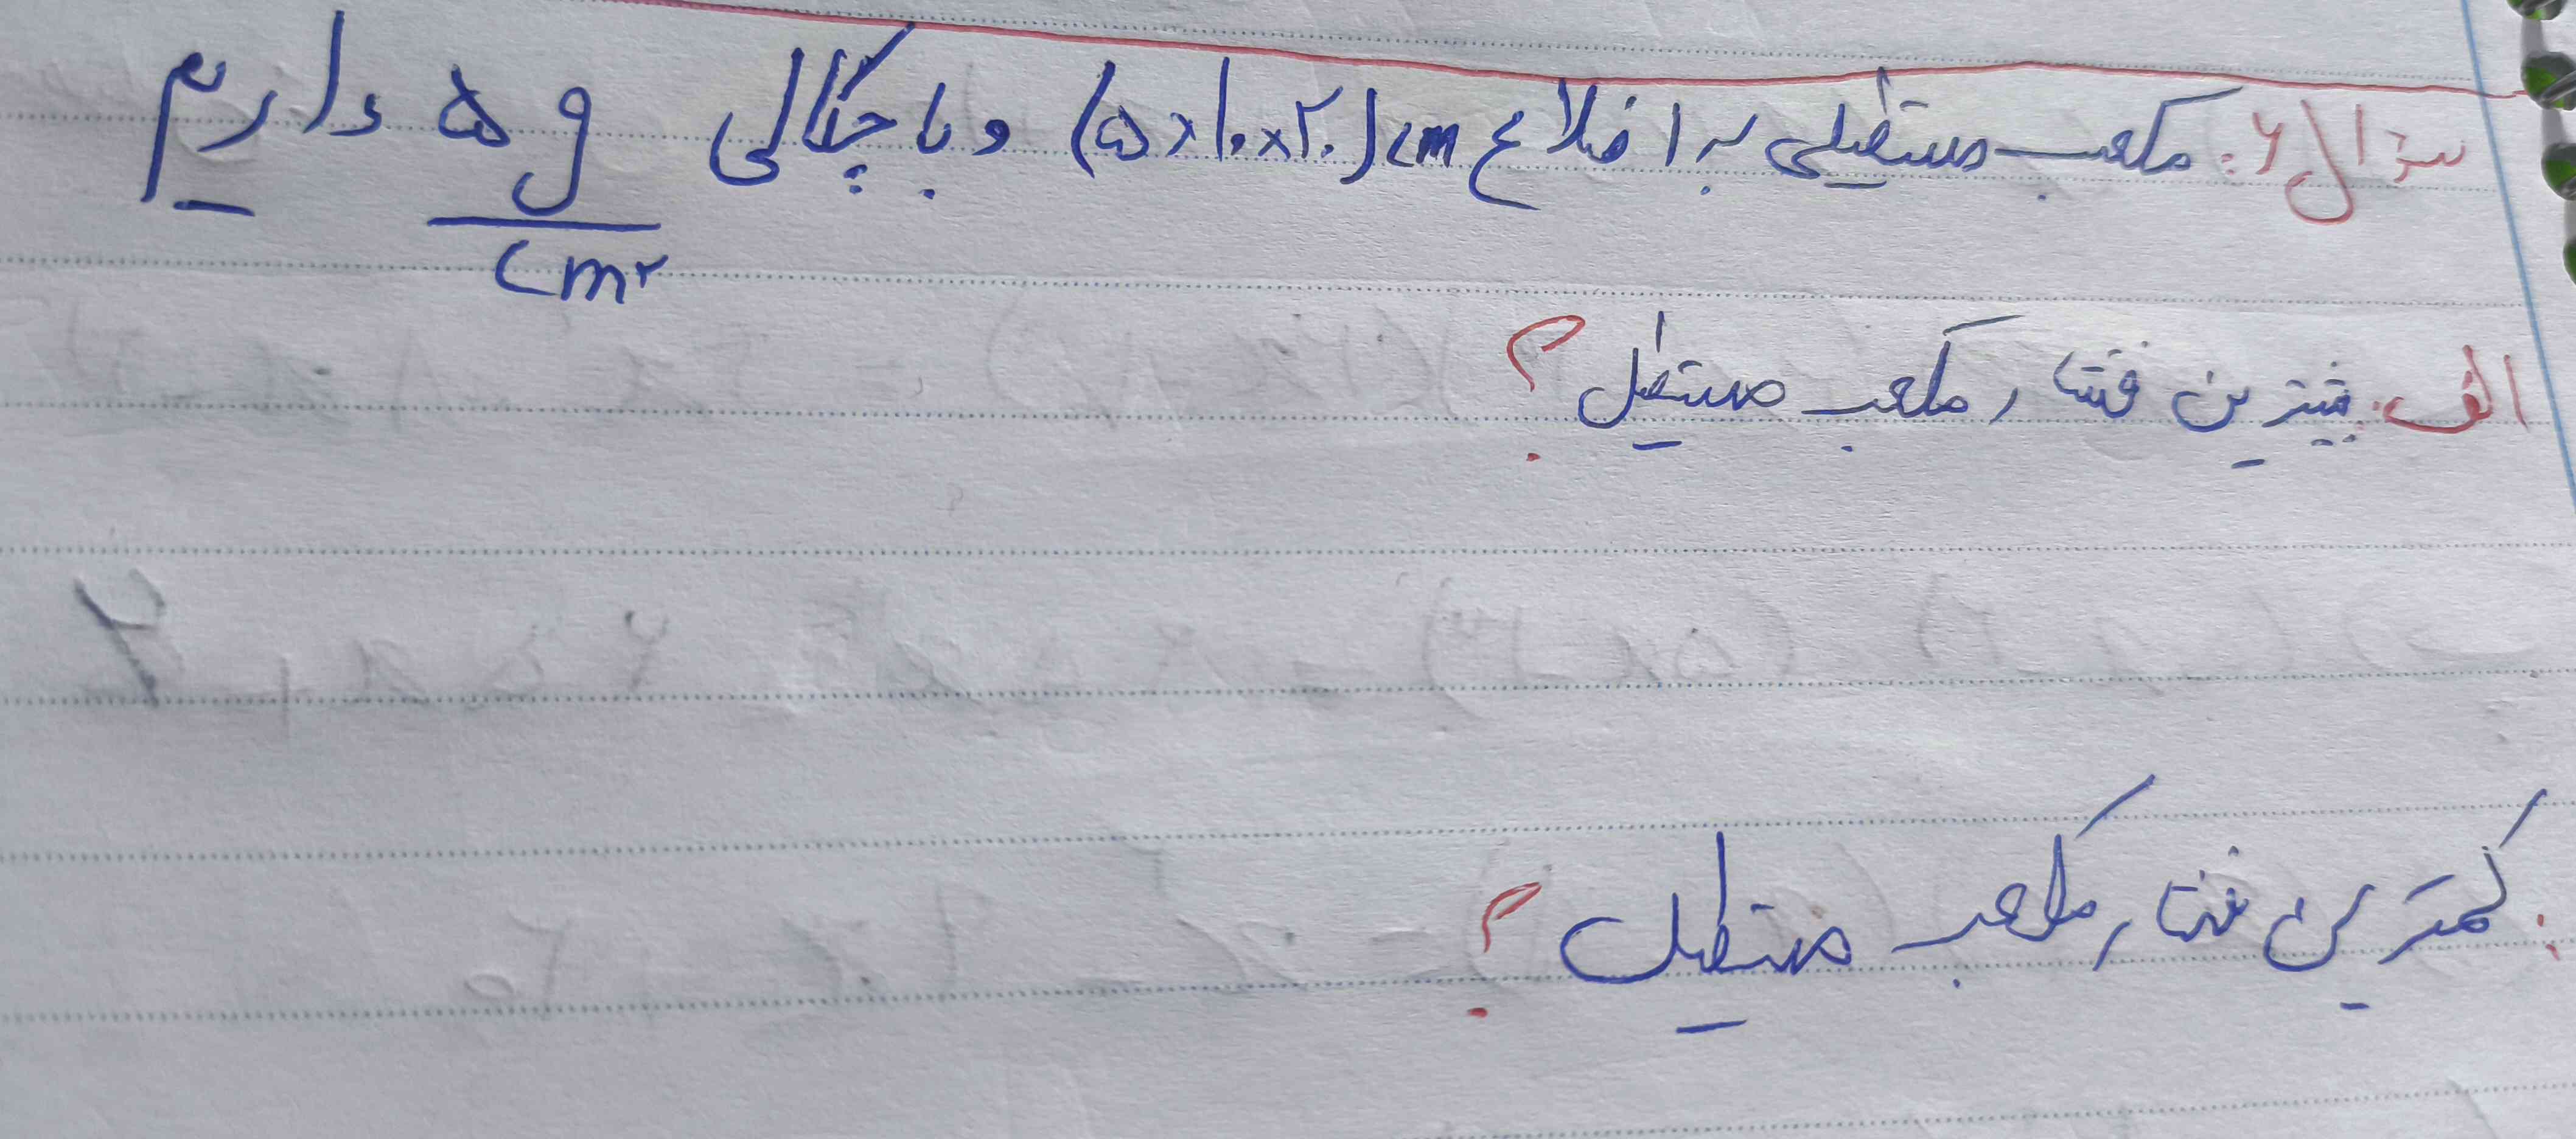 سوال ۶: مکعب مستطیلی به اضلاع cm (۵×۱۰×۲۰) و با چگالی ۵ g/cm۳ داریم
الف. بیشترین فشار مکعب مستطیل؟
کمترین فشار مکعب مستطیل؟